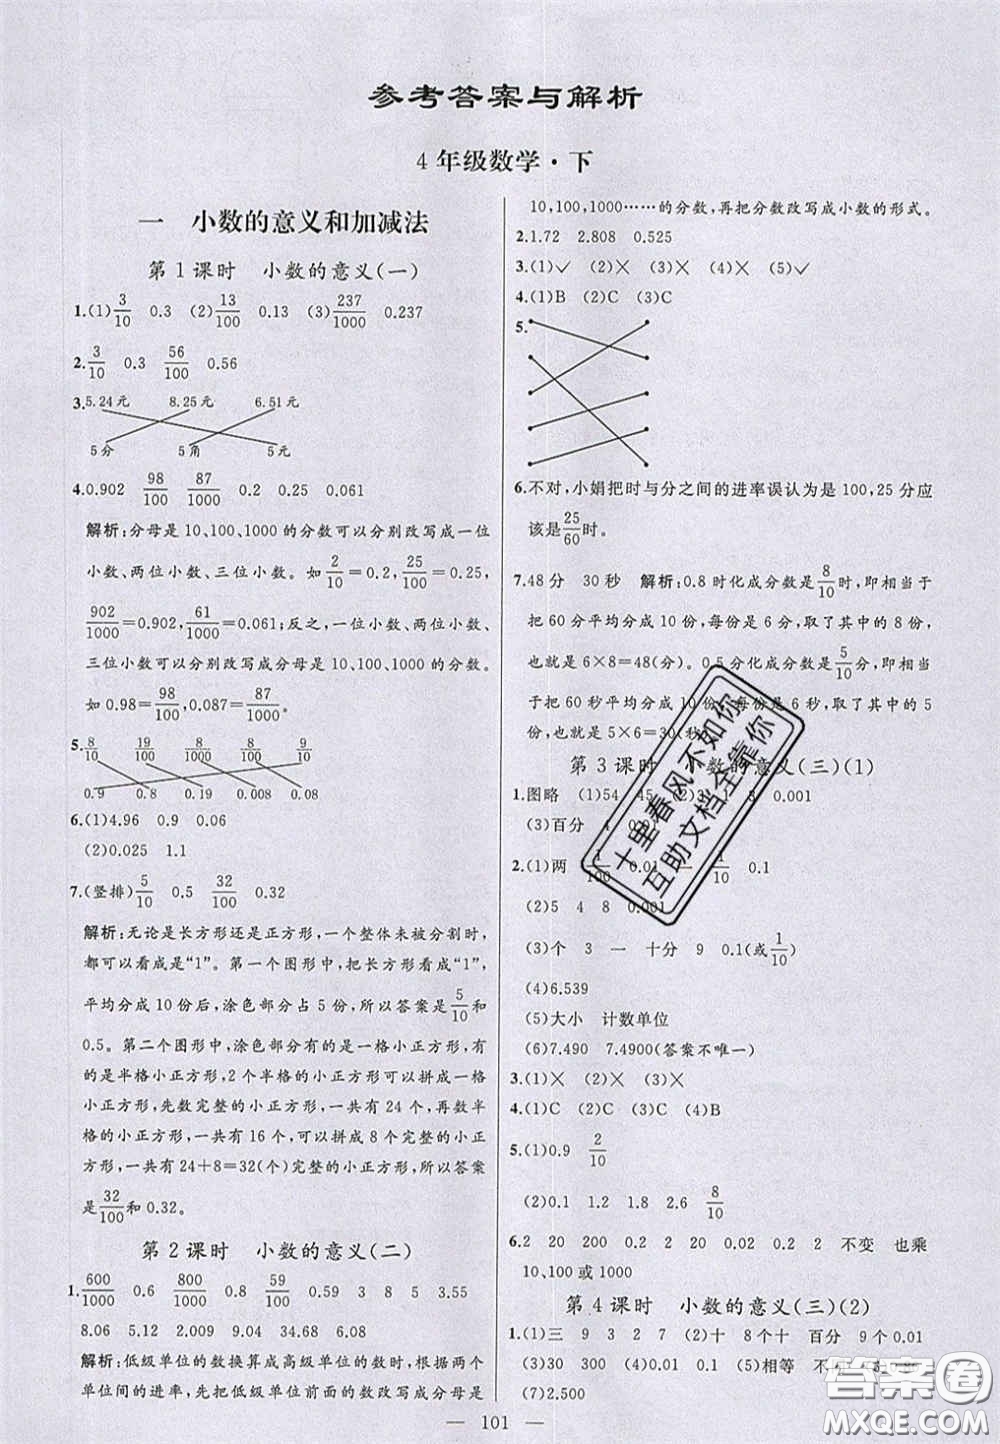 参考答案与解析
4年级数学·下
一 小数的意义和加减法
第1课时 小数的意义(一)
1.(1)3/10 0.3 (2)13/100 0.13 (3)237/1000 0.237
2.3/10 0.3 56/100 0.56
3.5.24元 8.25元 6.51元
5分 5角 5元
4.0.902 98/100 87/1000 0.2 0.25 0.061
解析:分母是10、100、1000的分数可以分别改写成一位
小数、两位小数、三位小数。如2/10=0.2,25/100=0.25,
902/1000=0.902,61/1000=0.061;反之,一位小数、两位小数、
三位小数可以分别改写成分母是10、100、1000的分数。
如0.98=98/100,0.087=87/1000。
5.8/10 19/100 8/1000 8/100 9/10
0.9 0.8 0.19 0.008 0.08
6.(1)4.96 0.9 0.06
(2)0.025 1.1
7.(竖排)5/10 0.5 32/100 0.32
解析:无论是长方形还是正方形,一个整体未被分割时,
都可以看成是“1”。第一个图形中,把长方形看成“1”,
平均分成10份后,涂色部分占5份,所以答案是5/10和
0.5。第二个图形中,涂色部分有的是一格小正方形,有
的是半格小正方形,2个半格的小正方形可以拼成一格
小正方形,先数完整的小正方形,一共有24个,再数半
格的小正方形,一共有16个,可以拼成8个完整的小正
方形,一共有24+8=32(个)完整的小正方形,所以答案
是32/100和0.32。
第2课时 小数的意义(二)
1.600/1000 0.6 800/1000 0.8 59/100 0.59 3 8 5 3.55
8.06 5.12 2.009 34.86 6.08
解析:低级单位的数换算成高级单位的数时,根据两个
单位间的进率,先把低级单位前面的数改写成分母是
10,100,1000……的分数,再把分数改写成小数的形式。
2.1.72 2.808 0.525
3.(1)✓ (2)× (3)× (4)× (5)✓
4.(1)B (2)C (3)A
5.
6.不对,小娟把时与分之间的进率误认为是100,25分应
该是25/60时。
7.48分 30秒 解析:0.8时化成分数是8/10时,即相当于
把60分平均分成10份,每份是6分,取了其中的8份,
也就是6×8=48(分)。0.5分化成分数是5/10分,即相当
于把60秒平均分成10份,每份是6秒,取了其中的5
份,也就是5×6=30(秒)
第3课时 小数的意义(三)(1)
1.图略 (1)54 45 (2) 8 0.001
(3)百分 4
2.(1)两 1/100 0.01 一 1/10 0.1
(2)5 4 8 0.001
(3)个 3 一 十分 9 0.1(或1/10)
(4)6.539
(5)大小 计数单位
(6)7.490 7.4900(答案不唯一)
3.(1)× (2)× (3)× (4)×
4.(1)C (2)C (3)A (4)B
5.(1)0.9 2/10
(2)0.1 1.2 1.8 2.6 8/10
6.2 20 200 2 20 0.02 0.2 2 不变 也乘
10,100或1000
第4课时 小数的意义(三)(2)
1.(1)三 9 3 2 7 (2)十 8个十 百分 9个0.01
(3)30 300 (4)0.01 0.1 (5)相等 不
(7)2.500
101
十里春风不如你
互助文档全靠你
答案圈
MXQE.COM